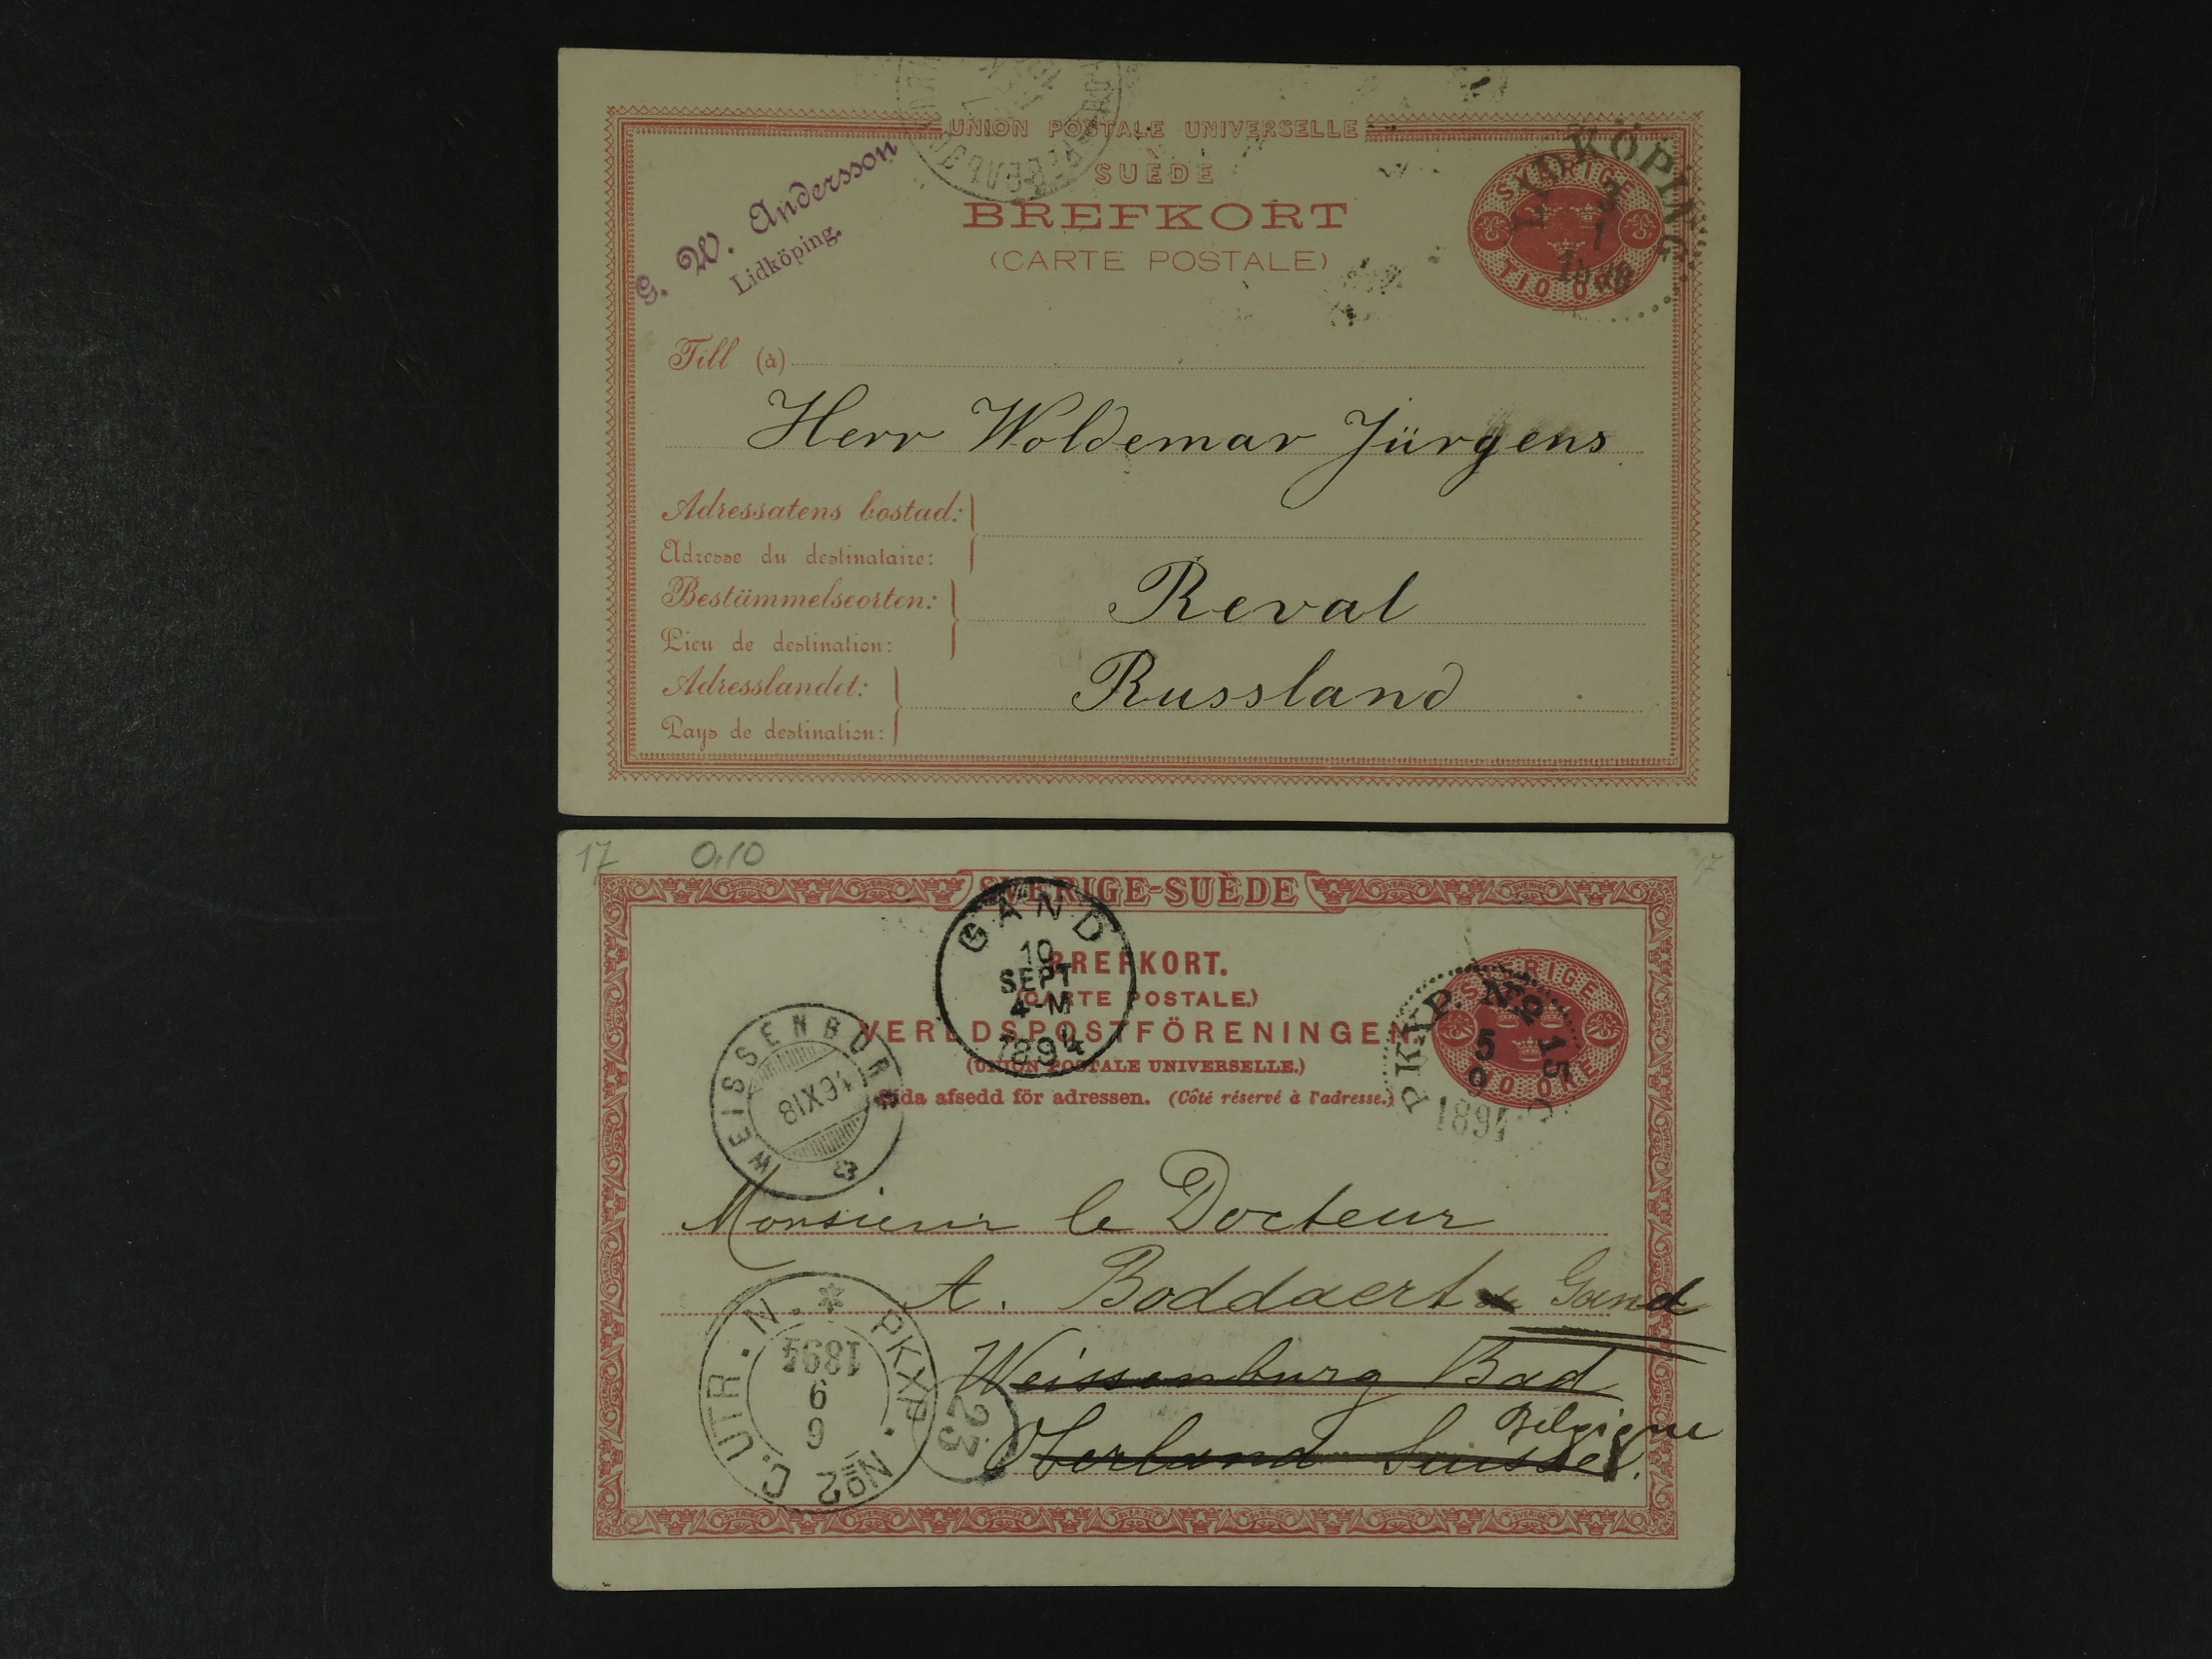 UNION POSTALE UNIVERSELLE
SUÈDE
BREFKORT
(CARTE POSTALE)
G. W. Andersson
Lidköping.
SVERIGE
TIO ÖRE
LIDKÖPING
3
1
Till (à)
Herr Woldemar Jürgens
Adressatens bostad:
Adresse du destinataire:
Reval
Bestämmelseorten:
Lieu de destination:
Russland
Adresslandet:
Pays de destination:
17 0,10
17
SVERIGE-SUÈDE
GAND
10
SEPT
4-M
1894
BREFKORT.
(CARTE POSTALE.)
VERLDSPOSTFÖRENINGEN.
(UNION POSTALE UNIVERSELLE.)
Sida afsedd för adressen. (Côté réservé à l'adresse.)
SVERIGE
TIO ÖRE
PKXP. No 15
5
9
1894
WEISSENBURG
Monsieur le Docteur
A. Boddaert de Gand
Weissenburg Bad
Belgique
Oberland Suisse.
PKXP. No2 C. UTR. N.
1894
9
6
23